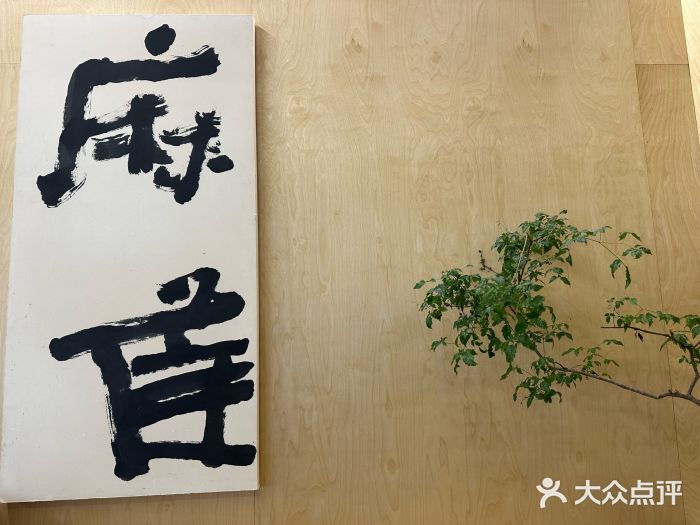 麻雀
大众点评